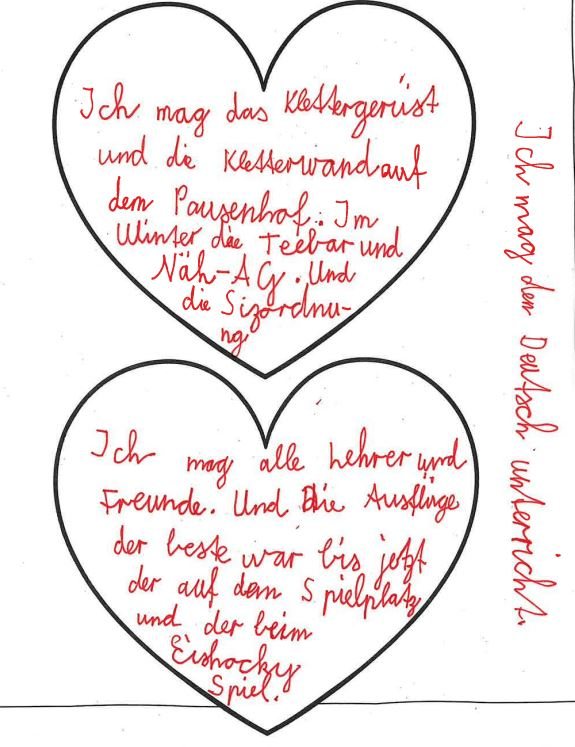 Ich mag das Klettergerüst
und die Kletterwand auf
dem Pausenhof. Im
Winter die Teebar und
Näh-AG. Und
die Sizordnu-
ng
Ich mag alle Lehrer und
Freunde. Und Die Ausflüge
der beste war bis jetzt
der auf dem Spielplatz
und der beim
Eishocky
Spiel.
Ich mag den Deutsch unterricht.